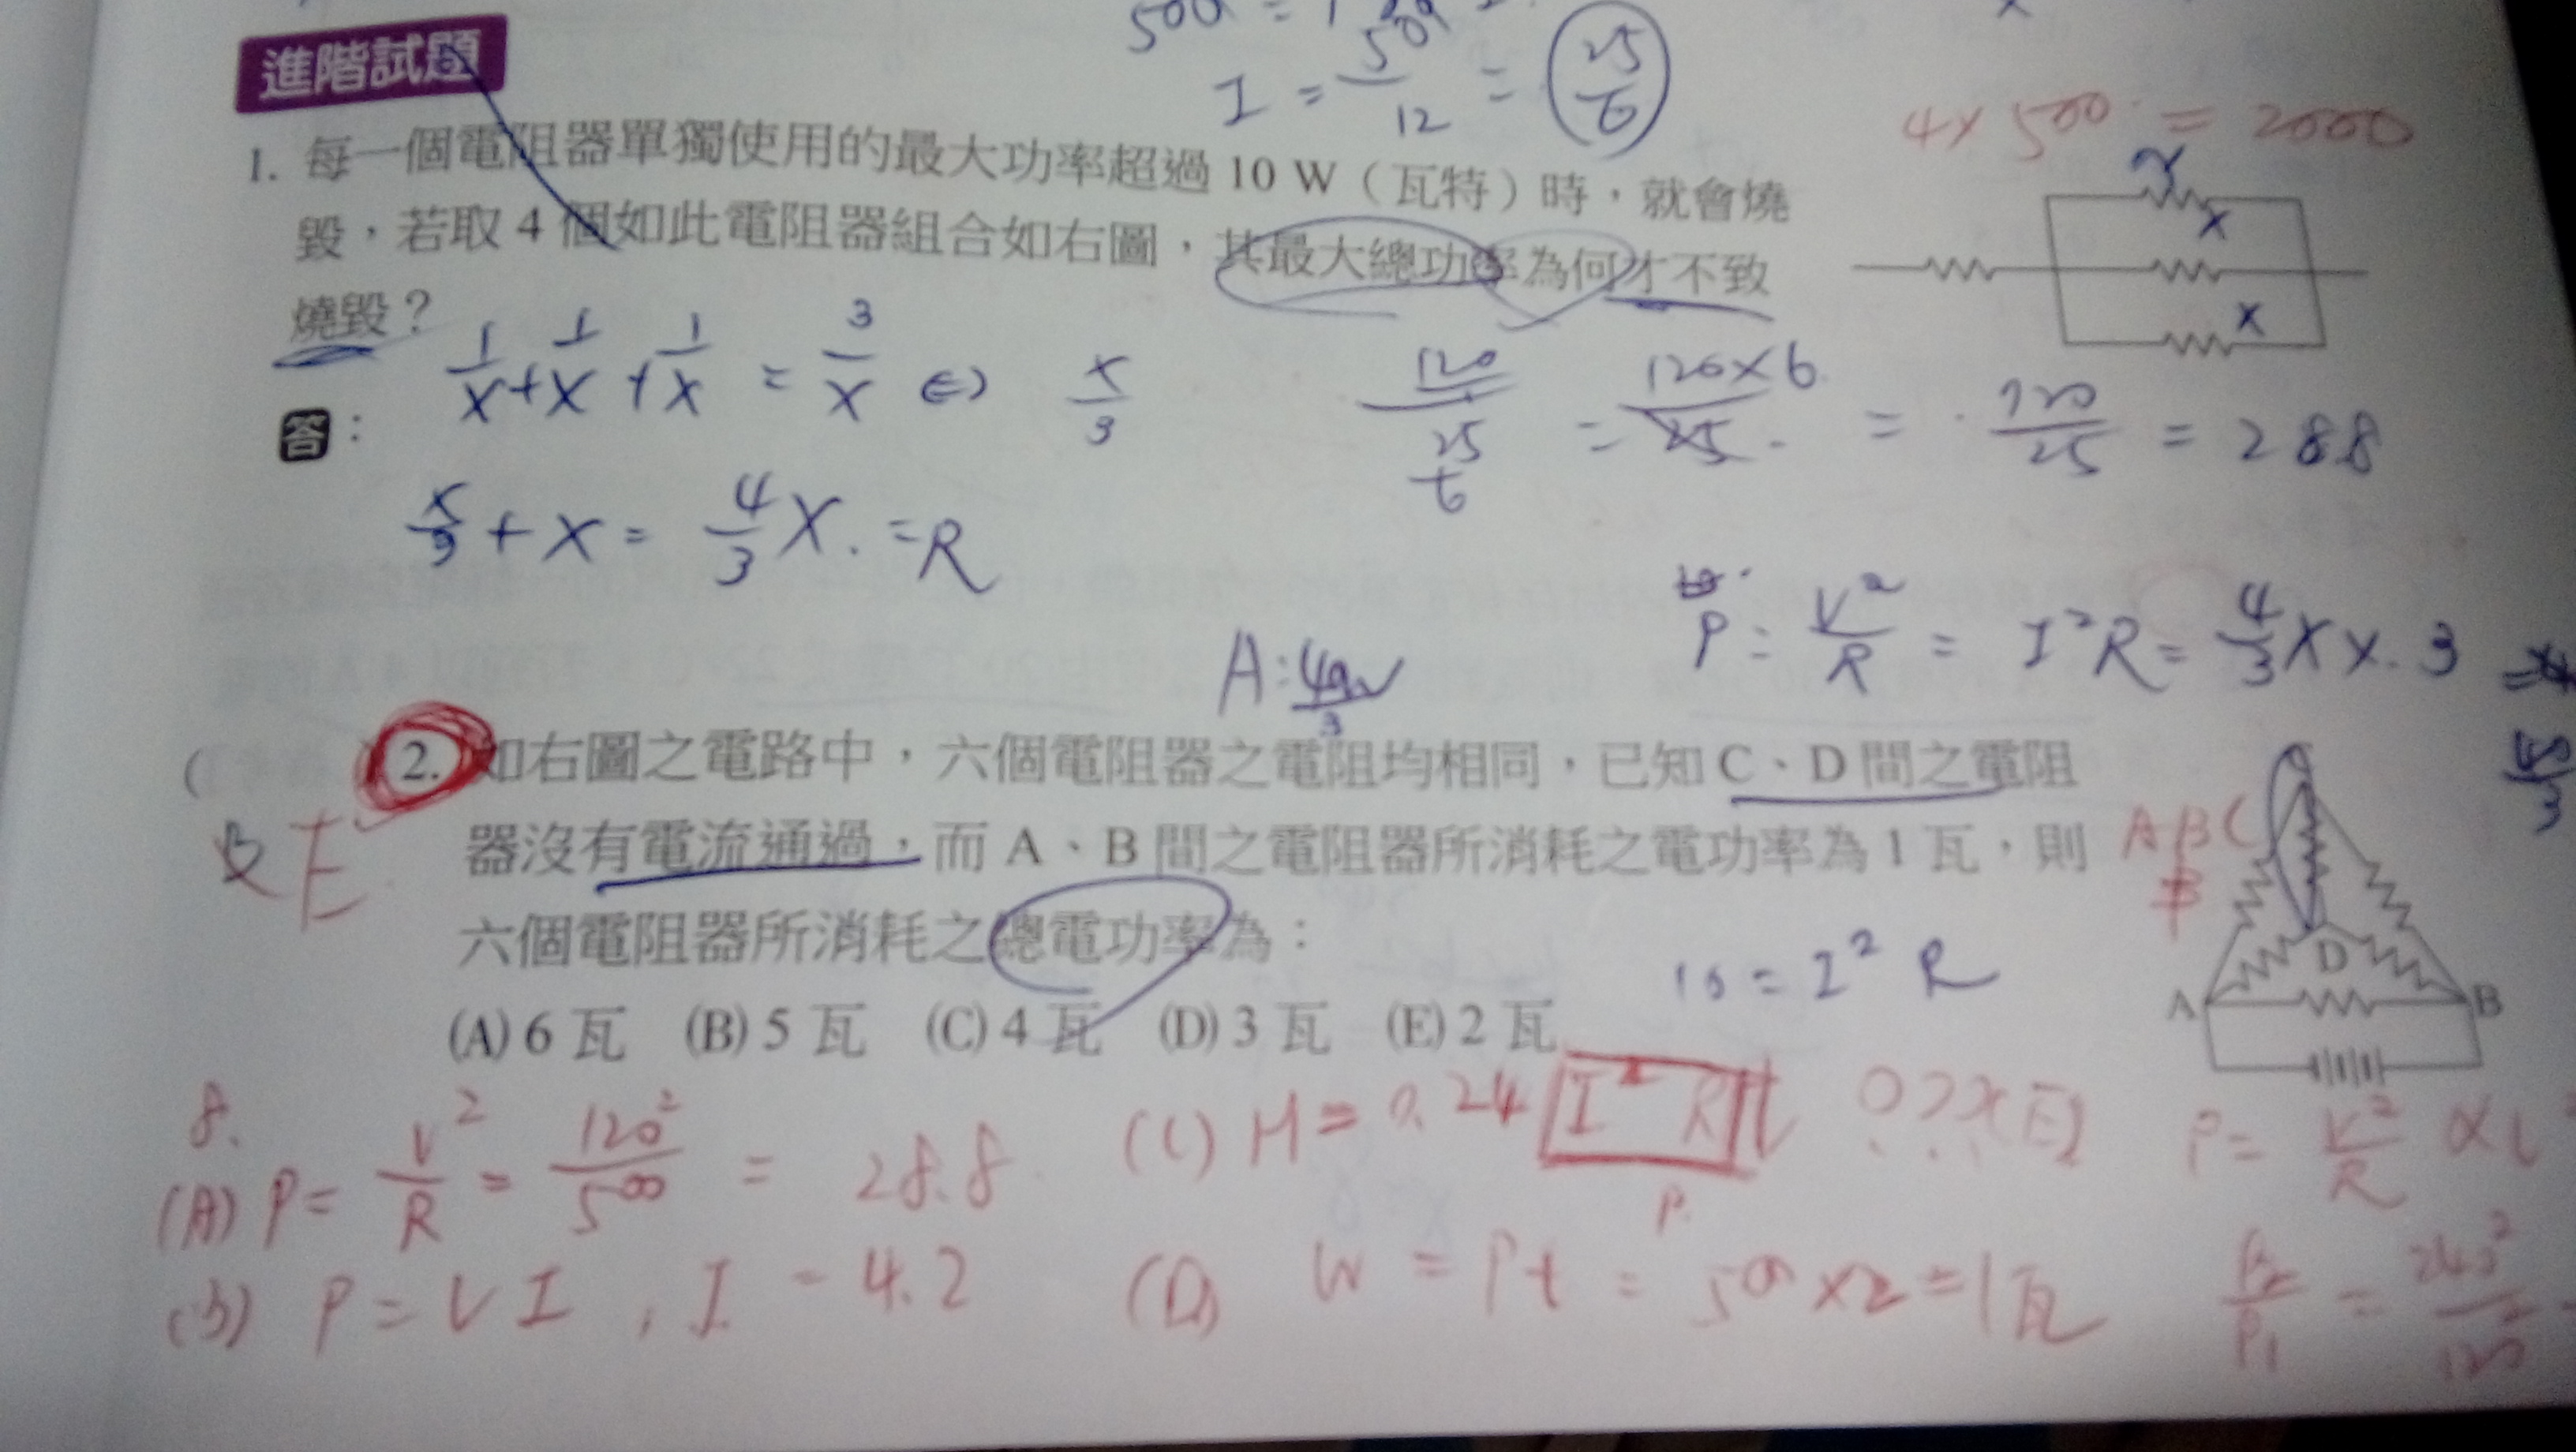 500 = 1
I = 500/12 = 25/6
進階試題
4 × 500 = 2000
1. 每一個電阻器單獨使用的最大功率超過 10 W（瓦特）時，就會燒
毀，若取 4 個如此電阻器組合如右圖，其最大總功率為何才不致
燒毀？
x
x
x
答：
1/x + 1/x + 1/x = 3/x ⇔ x/3
120/(25/6) = 120×6/25 = 720/25 = 288
x/3 + x = 4/3 x. = R
P = V²/R = I²R = 4/3 X x. 3
A: 40w/3
( 2. 如右圖之電路中，六個電阻器之電阻均相同，已知 C、D 間之電阻
器沒有電流通過，而 A、B 間之電阻器所消耗之電功率為 1 瓦，則
六個電阻器所消耗之總電功率為：
(A) 6 瓦 (B) 5 瓦 (C) 4 瓦 (D) 3 瓦 (E) 2 瓦
E
A B C
D
A
B
10 = I² R
8.
(A) P = V²/R = 120²/500 = 28.8
(C) H = 0.24 I² R t
P
P = V²/R ∝
(B) P = V I , I = 4.2
(D) W = Pt = 500 × 2 = 1瓦
P₂/P₁ = 240²/120